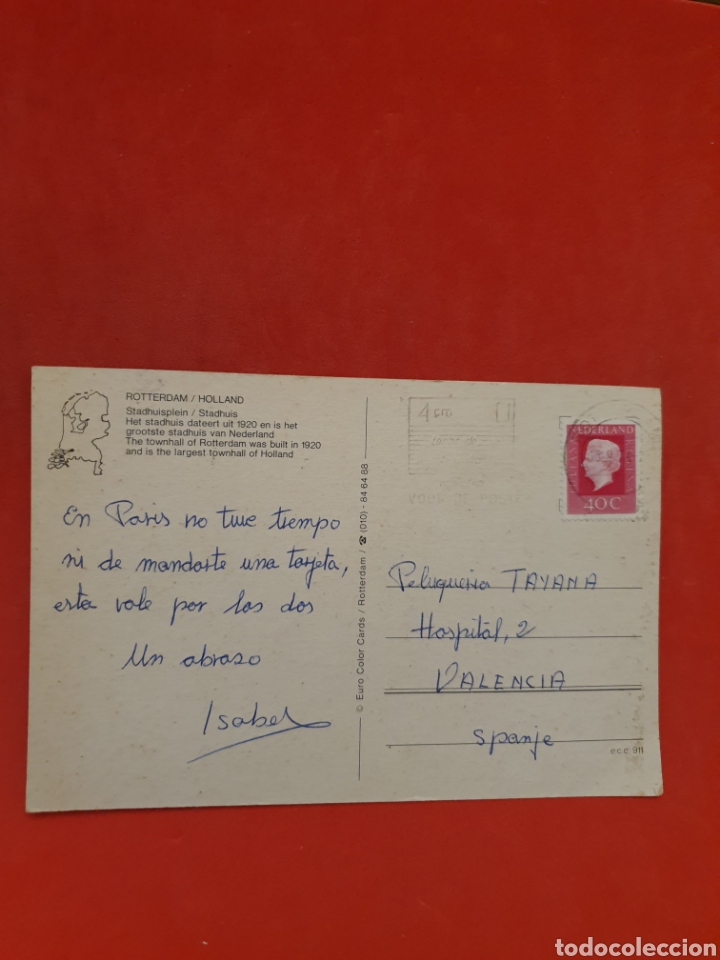 ROTTERDAM / HOLLAND
Stadhuisplein / Stadhuis
Het stadhuis dateert uit 1920 en is het
grootste stadhuis van Nederland
The townhall of Rotterdam was built in 1920
and is the largest townhall of Holland
En Paris no tuve tiempo
ni de mandarte una tarjeta,
esta vale por las dos
Un abrazo
Isabel
© Euro Color Cards / Rotterdam / ☎ (010) - 84 64 88
NEDERLAND
40C
Peluqueria TAYANA
Hospital, 2
VALENCIA
Spanje
ecc 911
todocoleccion